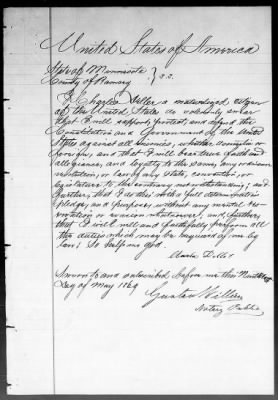 United States of America
State of Minnesota
County of Ramsey } s.s.
I Charles Deller a naturalized citizen
of the United States do solemnly swear
that I will support, protect, and defend the
Constitution and Government of the United
States against all enemies, whether domestic or
foreign; and that I will bear true faith and
allegiance, and loyalty to the same, any ordinance
resolution, or law of any State, convention, or
legislature to the contrary notwithstanding; and
further, that I do this with a full determination
pledge, and purpose, without any mental reser-
vation or evasion whatsoever; and, further,
that I will well and faithfully perform all
the duties which may be required of me by
law; So help me God.
Sworn to and subscribed before me this Ninth
Day of May 1869
Gustav Willius
Notary Public